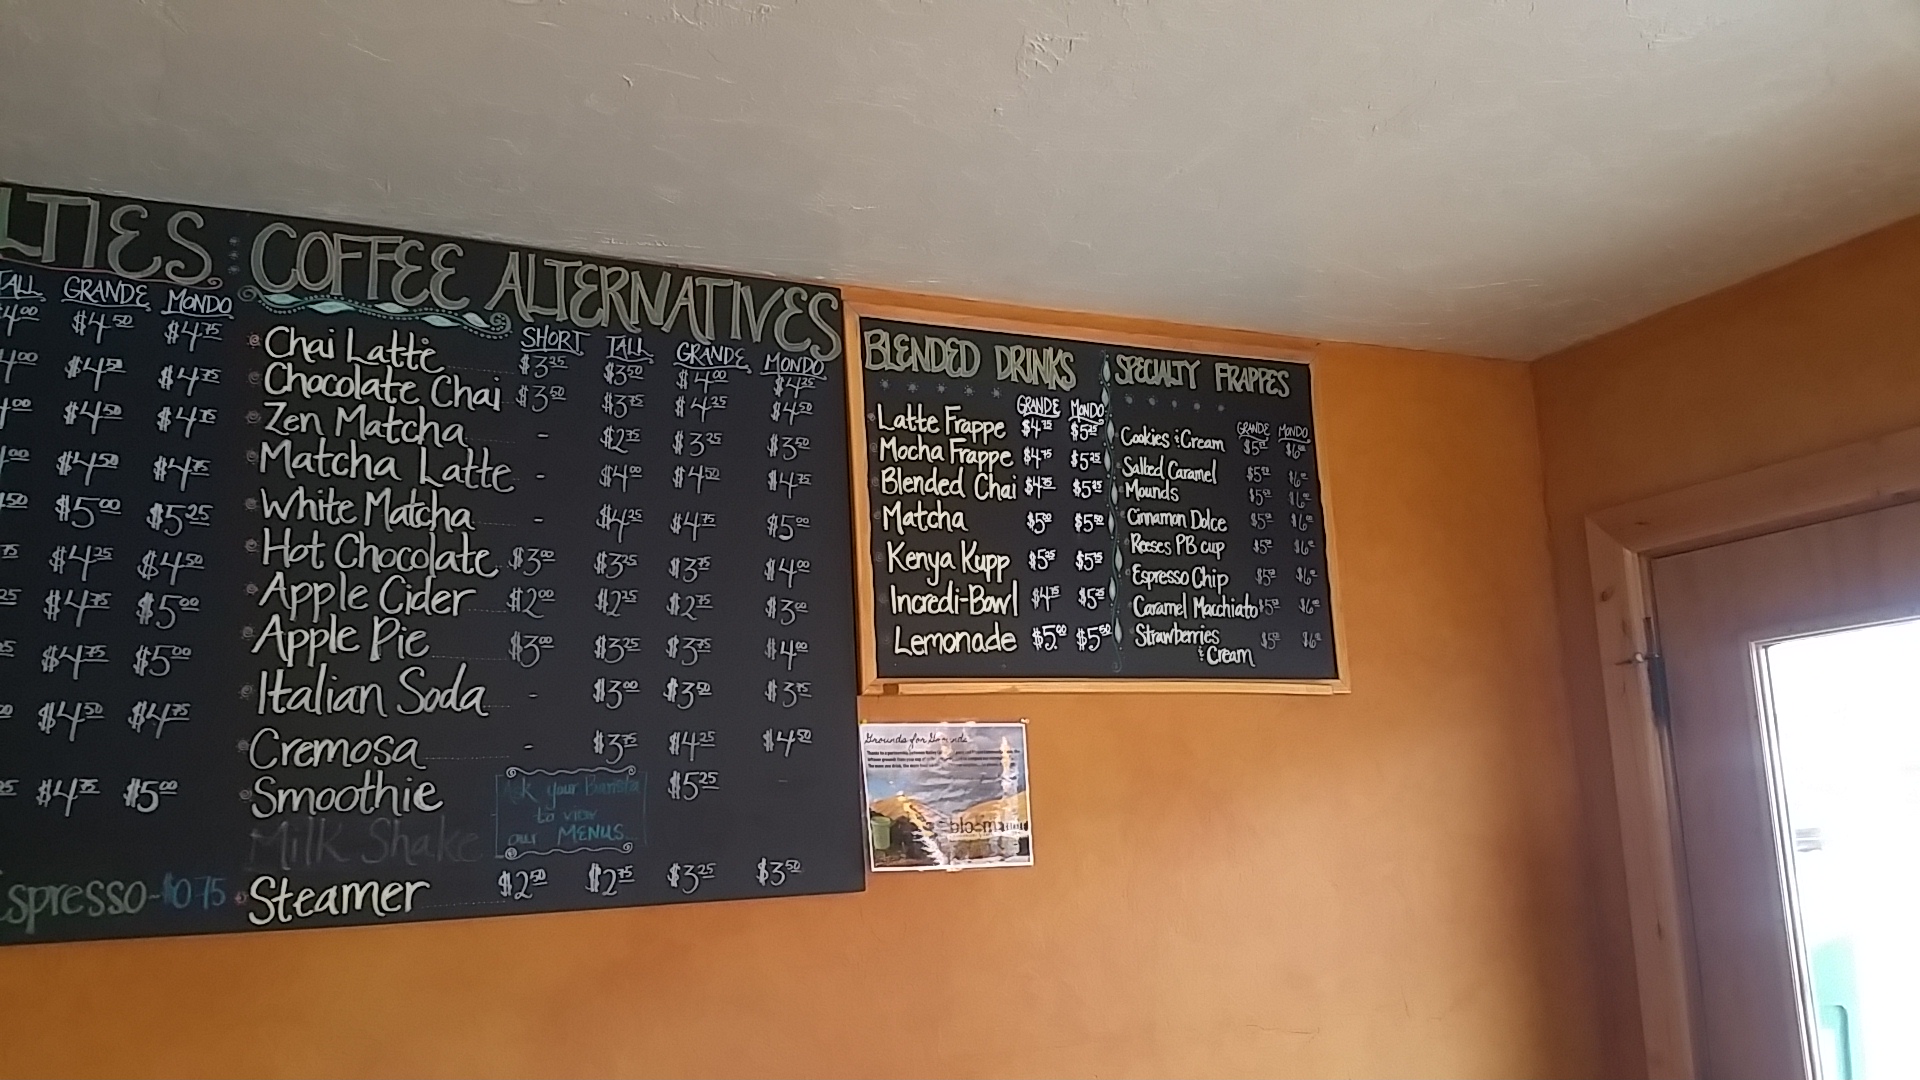 LTIES
TALL GRANDE MONDO
$4.50 $4.75
$4.50 $4.75
$4.50 $4.75
$4.50 $4.75
$5.00 $5.25
$4.25 $4.50
$4.75 $5.00
$4.75 $5.00
$4.50 $4.75
$4.75 $5.00
Espresso - $0.75
COFFEE ALTERNATIVES
SHORT TALL GRANDE MONDO
Chai Latte $3.25 $3.50 $4.00 $4.25
Chocolate Chai $3.50 $3.75 $4.25 $4.50
Zen Matcha - $2.75 $3.25 $3.50
Matcha Latte - $4.00 $4.50 $4.75
White Matcha - $4.25 $4.75 $5.00
Hot Chocolate $3.00 $3.25 $3.75 $4.00
Apple Cider $2.00 $2.25 $2.75 $3.00
Apple Pie $3.00 $3.25 $3.75 $4.00
Italian Soda - $3.00 $3.50 $3.75
Cremosa - $3.75 $4.25 $4.50
Smoothie $5.25 -
Ask your Barista
to view
our MENUS
Milk Shake
Steamer $2.50 $2.75 $3.25 $3.50
BLENDED DRINKS
GRANDE MONDO
Latte Frappe $4.75 $5.25
Mocha Frappe $4.75 $5.25
Blended Chai $4.75 $5.25
Matcha $5.00 $5.50
Kenya Kupp $5.25 $5.75
Incredi-Bowl $4.75 $5.25
Lemonade $5.00 $5.50
SPECIALTY FRAPPES
GRANDE MONDO
Cookies & Cream
Salted Caramel
Mounds
Cinnamon Dolce
Reeses PB cup
Espresso Chip
Caramel Macchiato
Strawberries
& Cream
Grounds for Grounds